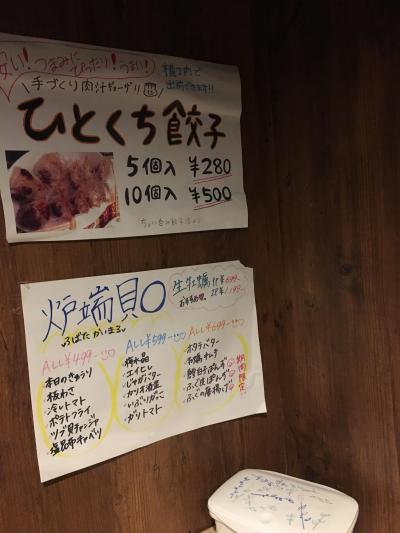 安い！つまみにぴったり！うまい！
横丁内で
出前できます!!
手づくり肉汁ギョーザ!!
ひとくち餃子
5個入 ¥280
10個入 ¥500
炉端貝〇
ろばたかいまる
生牡蠣 1P ¥699-
2P ¥1,199-
ALL¥499-
本日のきゅうり
板わさ
冷しトマト
ポテトフライ
ツブ貝チャンジャ
塩昆布キャベツ
ALL¥599-
梅水晶
エイヒレ
じゃがバター
カツオ酒盗
いぶりがっこ
ガリトマト
ALL¥699-
ホタテバター
鱈白子ぽんず
ふぐ皮ぽんず
ふぐの唐揚げ
期間限定!!